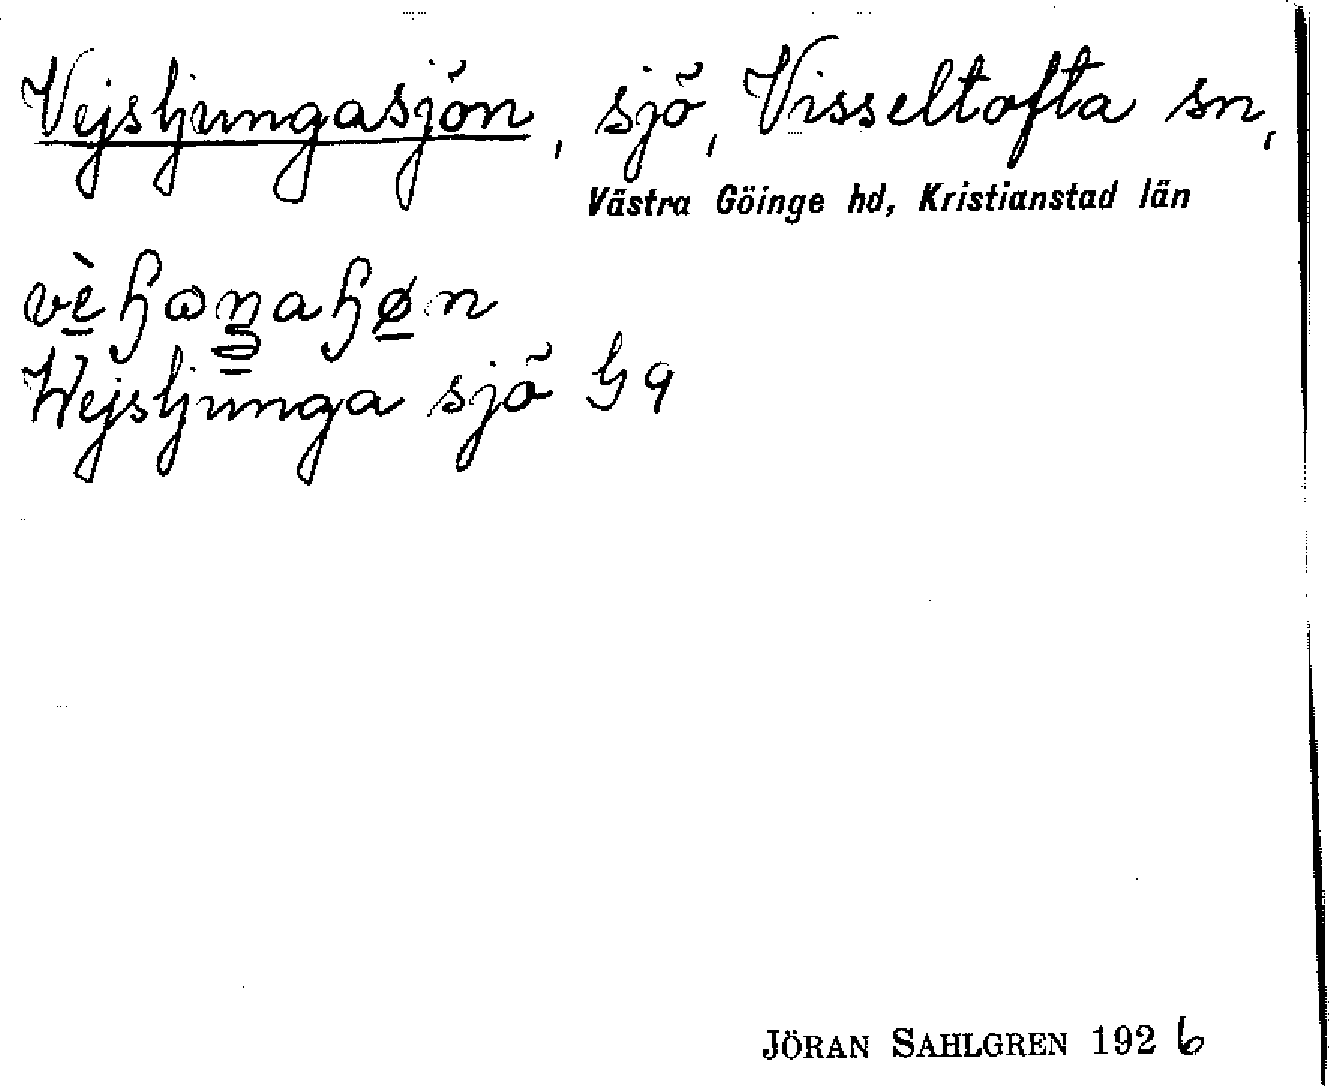 Vejsljungasjön, sjö, Visseltofta sn,
Västra Göinge hd, Kristianstad län
Wejsljunga sjö G9
JÖRAN SAHLGREN 1926